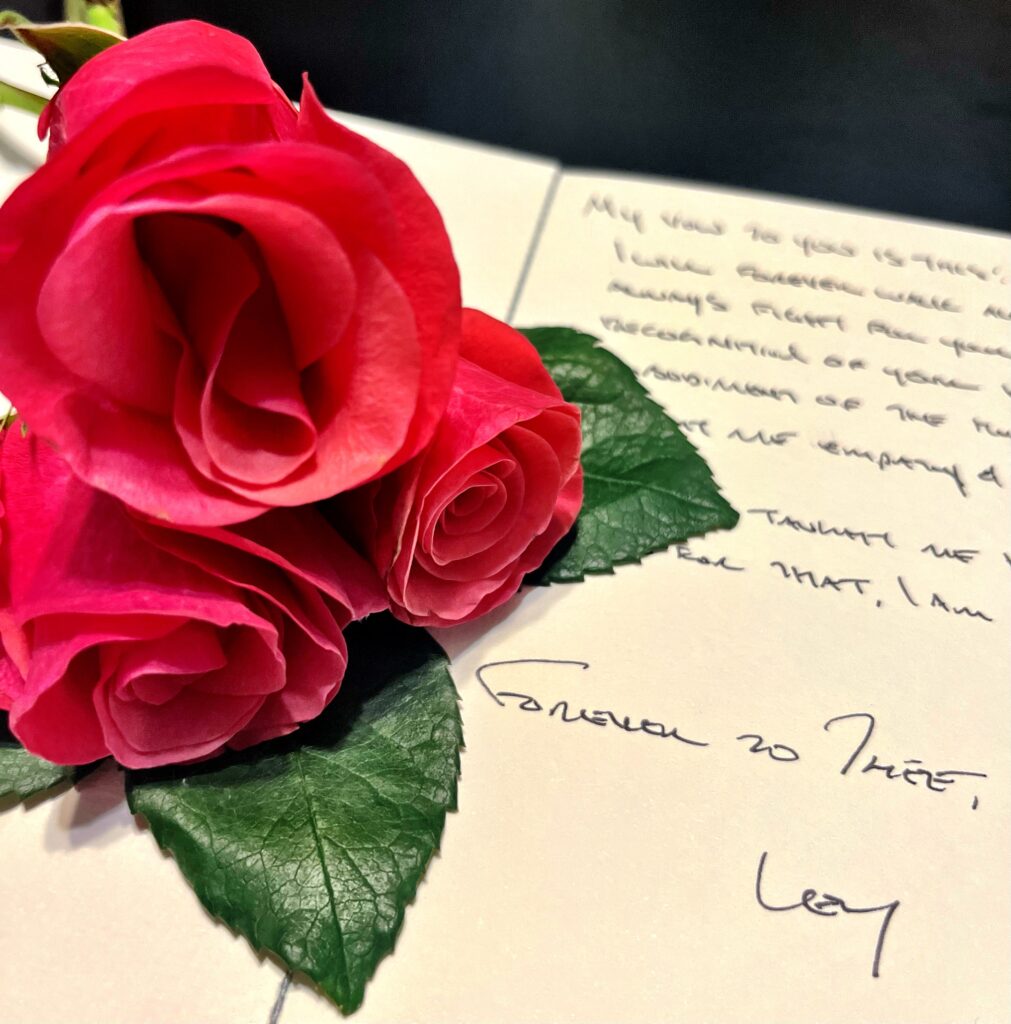 My vow to you is this:
I will forever walk
always fight for your
recognition of your
of the
me empathy &
me
For that, I am
Forever to Thee,
Ley